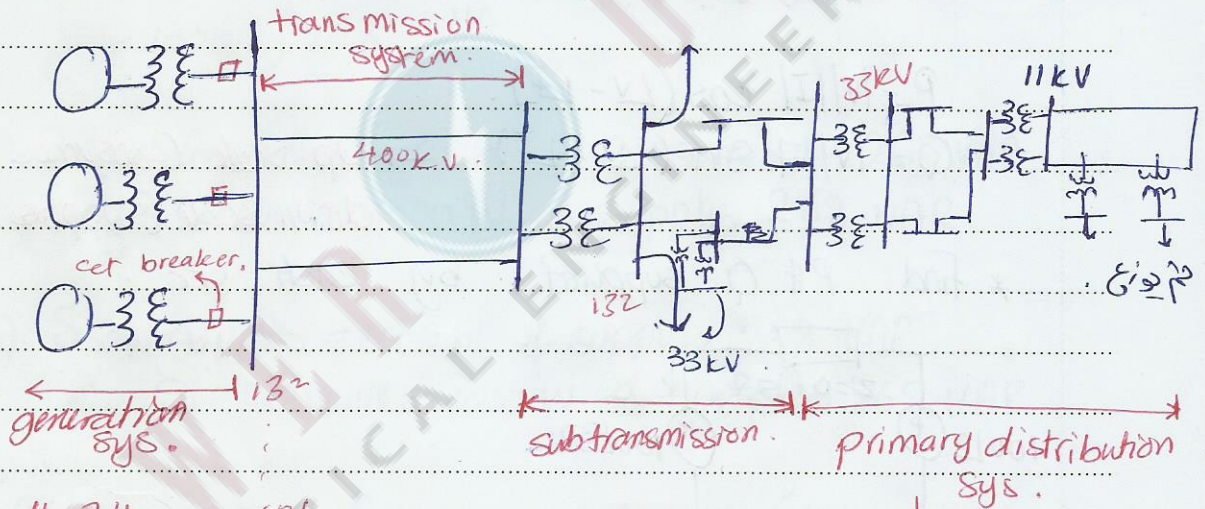 transmission
system.
33kV
11kV
400kV.
cct breaker.
132
33kV
132
generation
sys.
subtransmission.
primary distribution
sys.